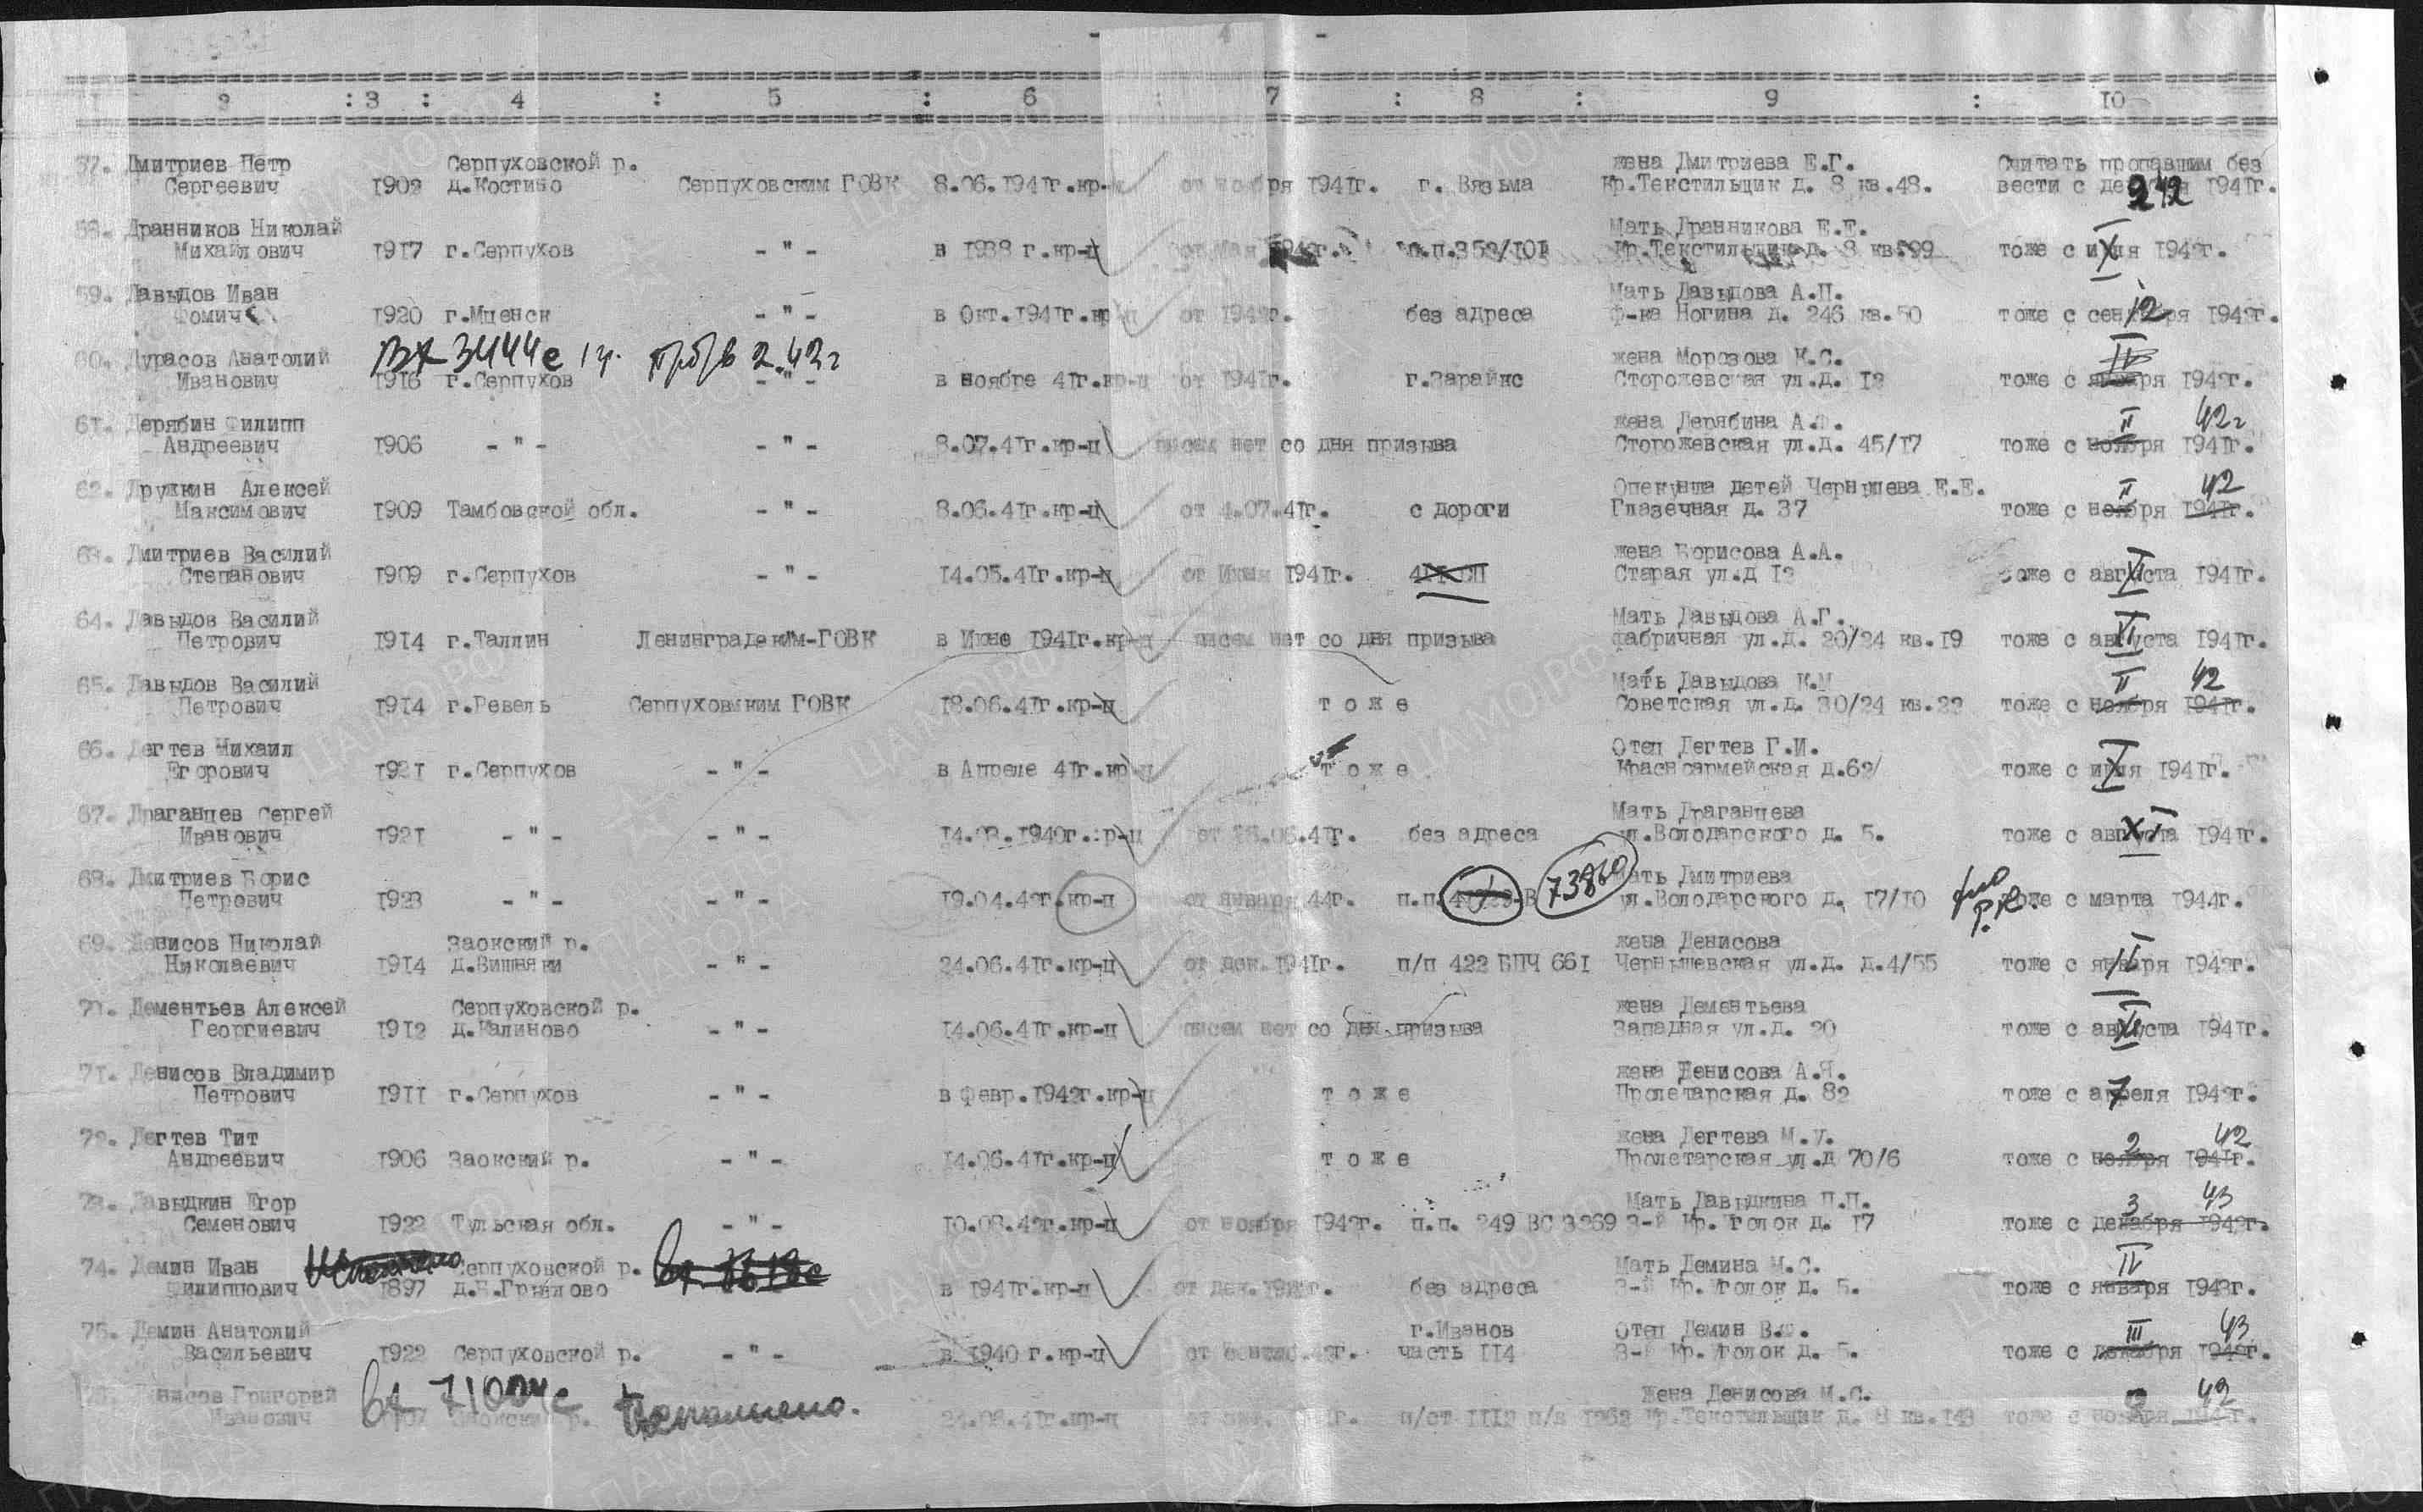 - 4 -
2 : 3 : 4 : 5 : 6 : 7 : 8 : 9 : 10
57. Дмитриев Петр Серпуховской р. жена Дмитриева Е.Г. Считать пропавшим без
Сергеевич 1902 д.Костино Серпуховским ГОВК 8.06.1941г.кр-ц от ноября 1941г. г. Вязьма Кр.Текстильщик д. 8 кв.48. вести с 1941г.
58. Дранников Николай Мать Дранникова Е.Е.
Михайлович 1917 г.Серпухов - " - в 1938 г.кр-ц от мая 1942г. п.п.353/101 Кр.Текстильщик д. 8 кв.99 тоже с июля 1942г.
59. Давыдов Иван Мать Давыдова А.П.
Фомич 1920 г.Мценск - " - в Окт.1941г.кр-ц от 1942г. без адреса ф-ка Ногина д. 246 кв.50 тоже с сентября 1942г. 12
60. Дурасов Анатолий вх 3444с 2.42г жена Морозова К.С. IV
Иванович 1916 г.Серпухов - " - в ноябре 41г.кр-ц от 1941г. г.Зарайнс Сторожевская ул.д. 12 тоже с января 1942г.
61. Дерябин Филипп жена Дерябина А.Ф. II 42г
Андреевич 1906 - " - - " - 8.07.41г.кр-ц писем нет со дня призыва Сторожевская ул.д. 45/17 тоже с ноября 1941г.
62. Дружкин Алексей Опекунша детей Чернышева Е.Е. II 42
Максимович 1909 Тамбовской обл. - " - 8.06.41г.кр-ц от 4.07.41г. с дороги Глазечная д. 37 тоже с ноября 1941г.
63. Дмитриев Василий жена Борисова А.А.
Степанович 1909 г.Серпухов - " - 14.05.41г.кр-ц от Июня 1941г. Старая ул.д 12 тоже с августа 1941г.
64. Давыдов Василий Мать Давыдова А.Г.
Петрович 1914 г.Таллин Ленинградским-ГОВК в Июне 1941г.кр-ц писем нет со дня призыва Фабричная ул.д. 20/24 кв.19 тоже с августа 1941г.
65. Давыдов Василий Мать Давыдова К.М II 42
Петрович 1914 г.Ревель Серпуховмким ГОВК 18.06.41г.кр-ц т о ж е Советская ул.д. 30/24 кв.22 тоже с ноября 1941г.
66. Дегтев Михаил Отец Дегтев Г.И.
Егорович 1921 г.Серпухов - " - в Апреле 41г.кр-ц т о ж е Красноармейская д.62/ тоже с июля 1941г.
67. Драганцев Сергей Мать Драганцева
Иванович 1921 - " - - " - 14.03.1940г.кр-ц от 18.06.41г. без адреса ул.Володарского д. 5. тоже с августа 1941г.
68. Дмитриев Борис 73860 Мать Дмитриева
Петрович 1923 - " - - " - 19.04.42г.кр-ц от января 44г. п.п. ул.Володарского д. 17/10 тоже с марта 1944г.
69. Денисов Николай Заокский р. жена Денисова
Николаевич 1914 д.Вишняки - " - 24.06.41г.кр-ц от дек.1941г. п/п 422 БПЧ 661 Чернышевская ул.д. д.4/55 тоже с января 1942г.
70. Дементьев Алексей Серпуховской р. жена Дементьева
Георгиевич 1912 д.Калиново - " - 14.06.41г.кр-ц писем нет со дня призыва Западная ул.д. 20 тоже с августа 1941г.
71. Денисов Владимир жена Денисова А.Я.
Петрович 1911 г.Серпухов - " - в февр.1942г.кр-ц т о ж е Пролетарская д. 82 тоже с апреля 1942г. 7
72. Дегтев Тит жена Дегтева М.У. 2 42
Андреевич 1906 Заокский р. - " - 14.06.41г.кр-ц т о ж е Пролетарская ул.д 70/6 тоже с ноября 1941г.
73. Давыдкин Егор Мать Давыдкина П.П. 3 43
Семенович 1922 Тульская обл. - " - 10.03.42г.кр-ц от ноября 1942г. п.п. 249 ВС 3269 3-й Кр.Уголок д. 17 тоже с декабря 1942г.
74. Демин Иван Серпуховской р. Мать Демина М.С. IV
Филиппович 1897 д.Б.Грызлово в 1941г.кр-ц от дек.1942г. без адреса 3-й Кр.Уголок д. 5. тоже с января 1943г.
75. Демин Анатолий г.Иванов Отец Демин В.Ф. III 43
Васильевич 1922 Серпуховской р. - " - в 1940 г.кр-ц часть 114 3-й Кр.Уголок д. 5. тоже с декабря 1942г.
76. Денисов Григорий вх 71004с Исполнено. Жена Денисова М.С. 42
Иванович 1907 Заокский р. 24.08.41г.кр-ц п/ст 1112 п/я 1262 Кр.Текстильщик д. 8 кв.143 тоже с ноября